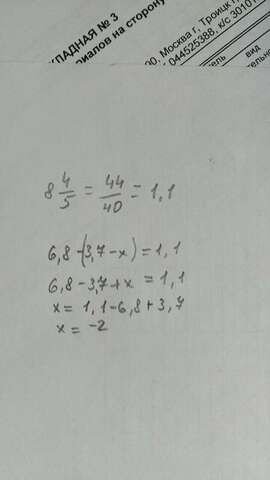 КЛАДНАЯ № 3
риалов на сторону
00, Москва г, Троицк г
044525388, к/с 30101
вид
8 4/5 = 44/40 = 1,1
6,8-(3,7-x)=1,1
6,8-3,7+x = 1,1
x= 1,1-6,8+3,7
x= -2